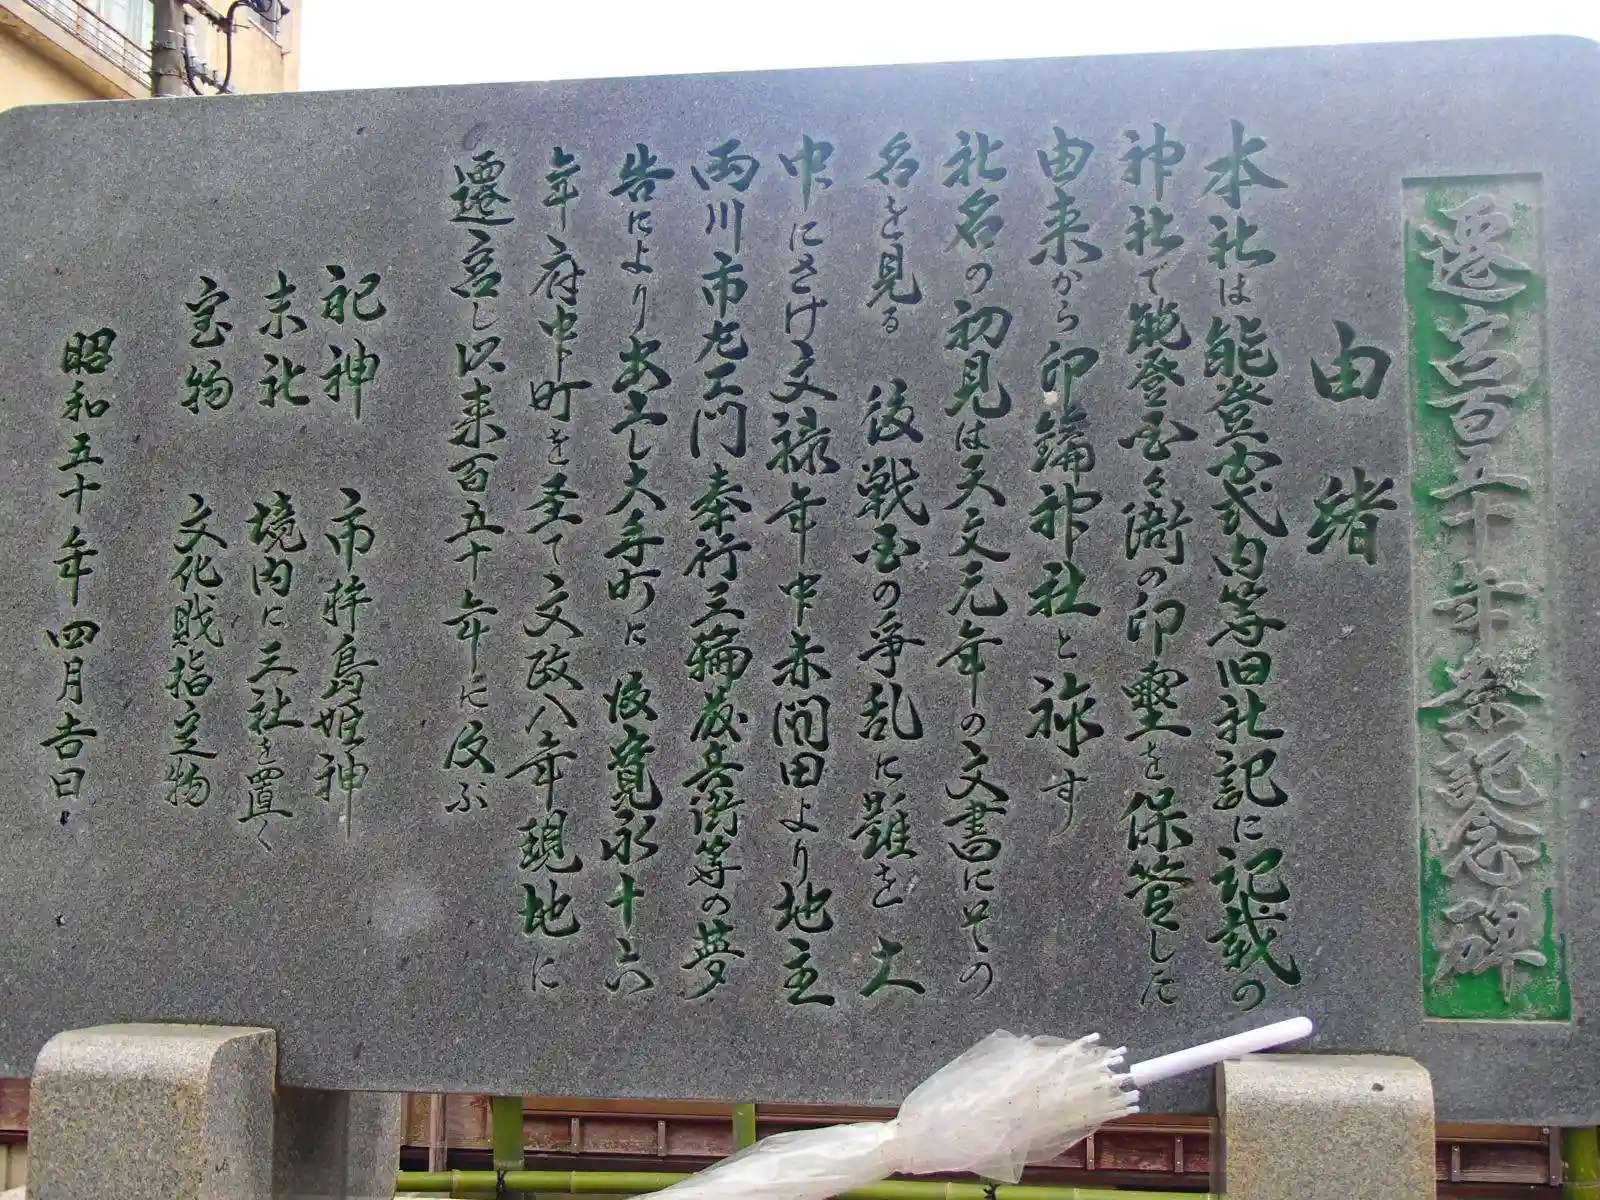 遷宮百五十年祭記念碑
由緒
本社は能登式内等旧社記に記載の
神社で能登国々衙の印璽を保管した
由来から印鑰神社と称す
社名の初見は天文元年の文書にその
名を見る 後戦国の争乱に難を土
中にさけ文禄年中赤間田より地主
両川市左エ門 奉行三輪藤兵衛等の夢
告によりあエし大手町に 後寛永十六
年府中町を至て文政八年現地に
遷宮し以来百五十年に及ぶ
祀神 市杵島姫神
末社 境内に三社を置く
宝物 文化財指定物
昭和五十年四月吉日